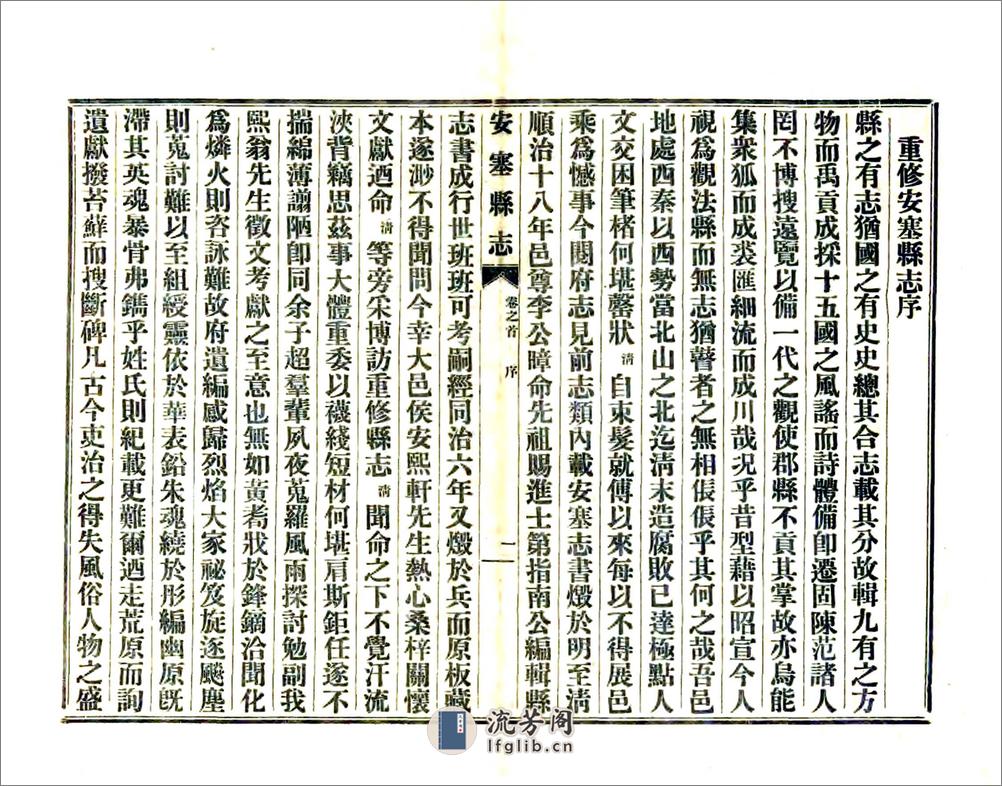 重修安塞縣志序
縣之有志猶國之有史史總其合志載其分故輯九有之方
物而禹貢成採十五國之風謠而詩體備卽遷固陳范諸人
罔不博搜遠覽以備一代之觀使郡縣不貢其掌故亦烏能
集衆狐而成裘匯細流而成川哉况乎昔型藉以昭宣今人
視爲觀法縣而無志猶瞽者之無相倀倀乎其何之哉吾邑
地處西秦以西勢當北山之北迄淸末造腐敗已達極點人
文交困筆楮何堪罄狀淸自束髮就傅以來每以不得展邑
乘爲憾事今閱府志見前志類內載安塞志書燬於明至淸
順治十八年邑尊李公暲命先祖賜進士第指南公編輯縣
安塞縣志
卷之首 序
一
志書成行世班班可考嗣經同治六年又燬於兵而原板藏
本遂渺不得聞問今幸大邑侯安熙軒先生熱心桑梓關懷
文獻迺命淸等旁采博訪重修縣志淸聞命之下不覺汗流
浹背竊思茲事大體重委以襪綫短材何堪肩斯鉅任遂不
揣綿薄謭陋卽同余子超羣輩夙夜蒐羅風雨探討勉副我
熙翁先生徵文考獻之至意也無如黃耈戕於鋒鏑洽聞化
爲燐火則咨詠難故府遺編感歸烈焰大家祕笈旋逐飈塵
則蒐討難以至組綬靈依於華表鉛朱魂繞於彤編幽原旣
滯其英魂暴骨弗鐫乎姓氏則紀載更難爾迺走荒原而詢
遺獻撥苔蘚而搜斷碑凡古今吏治之得失風俗人物之盛
流芳阁
lfglib.cn